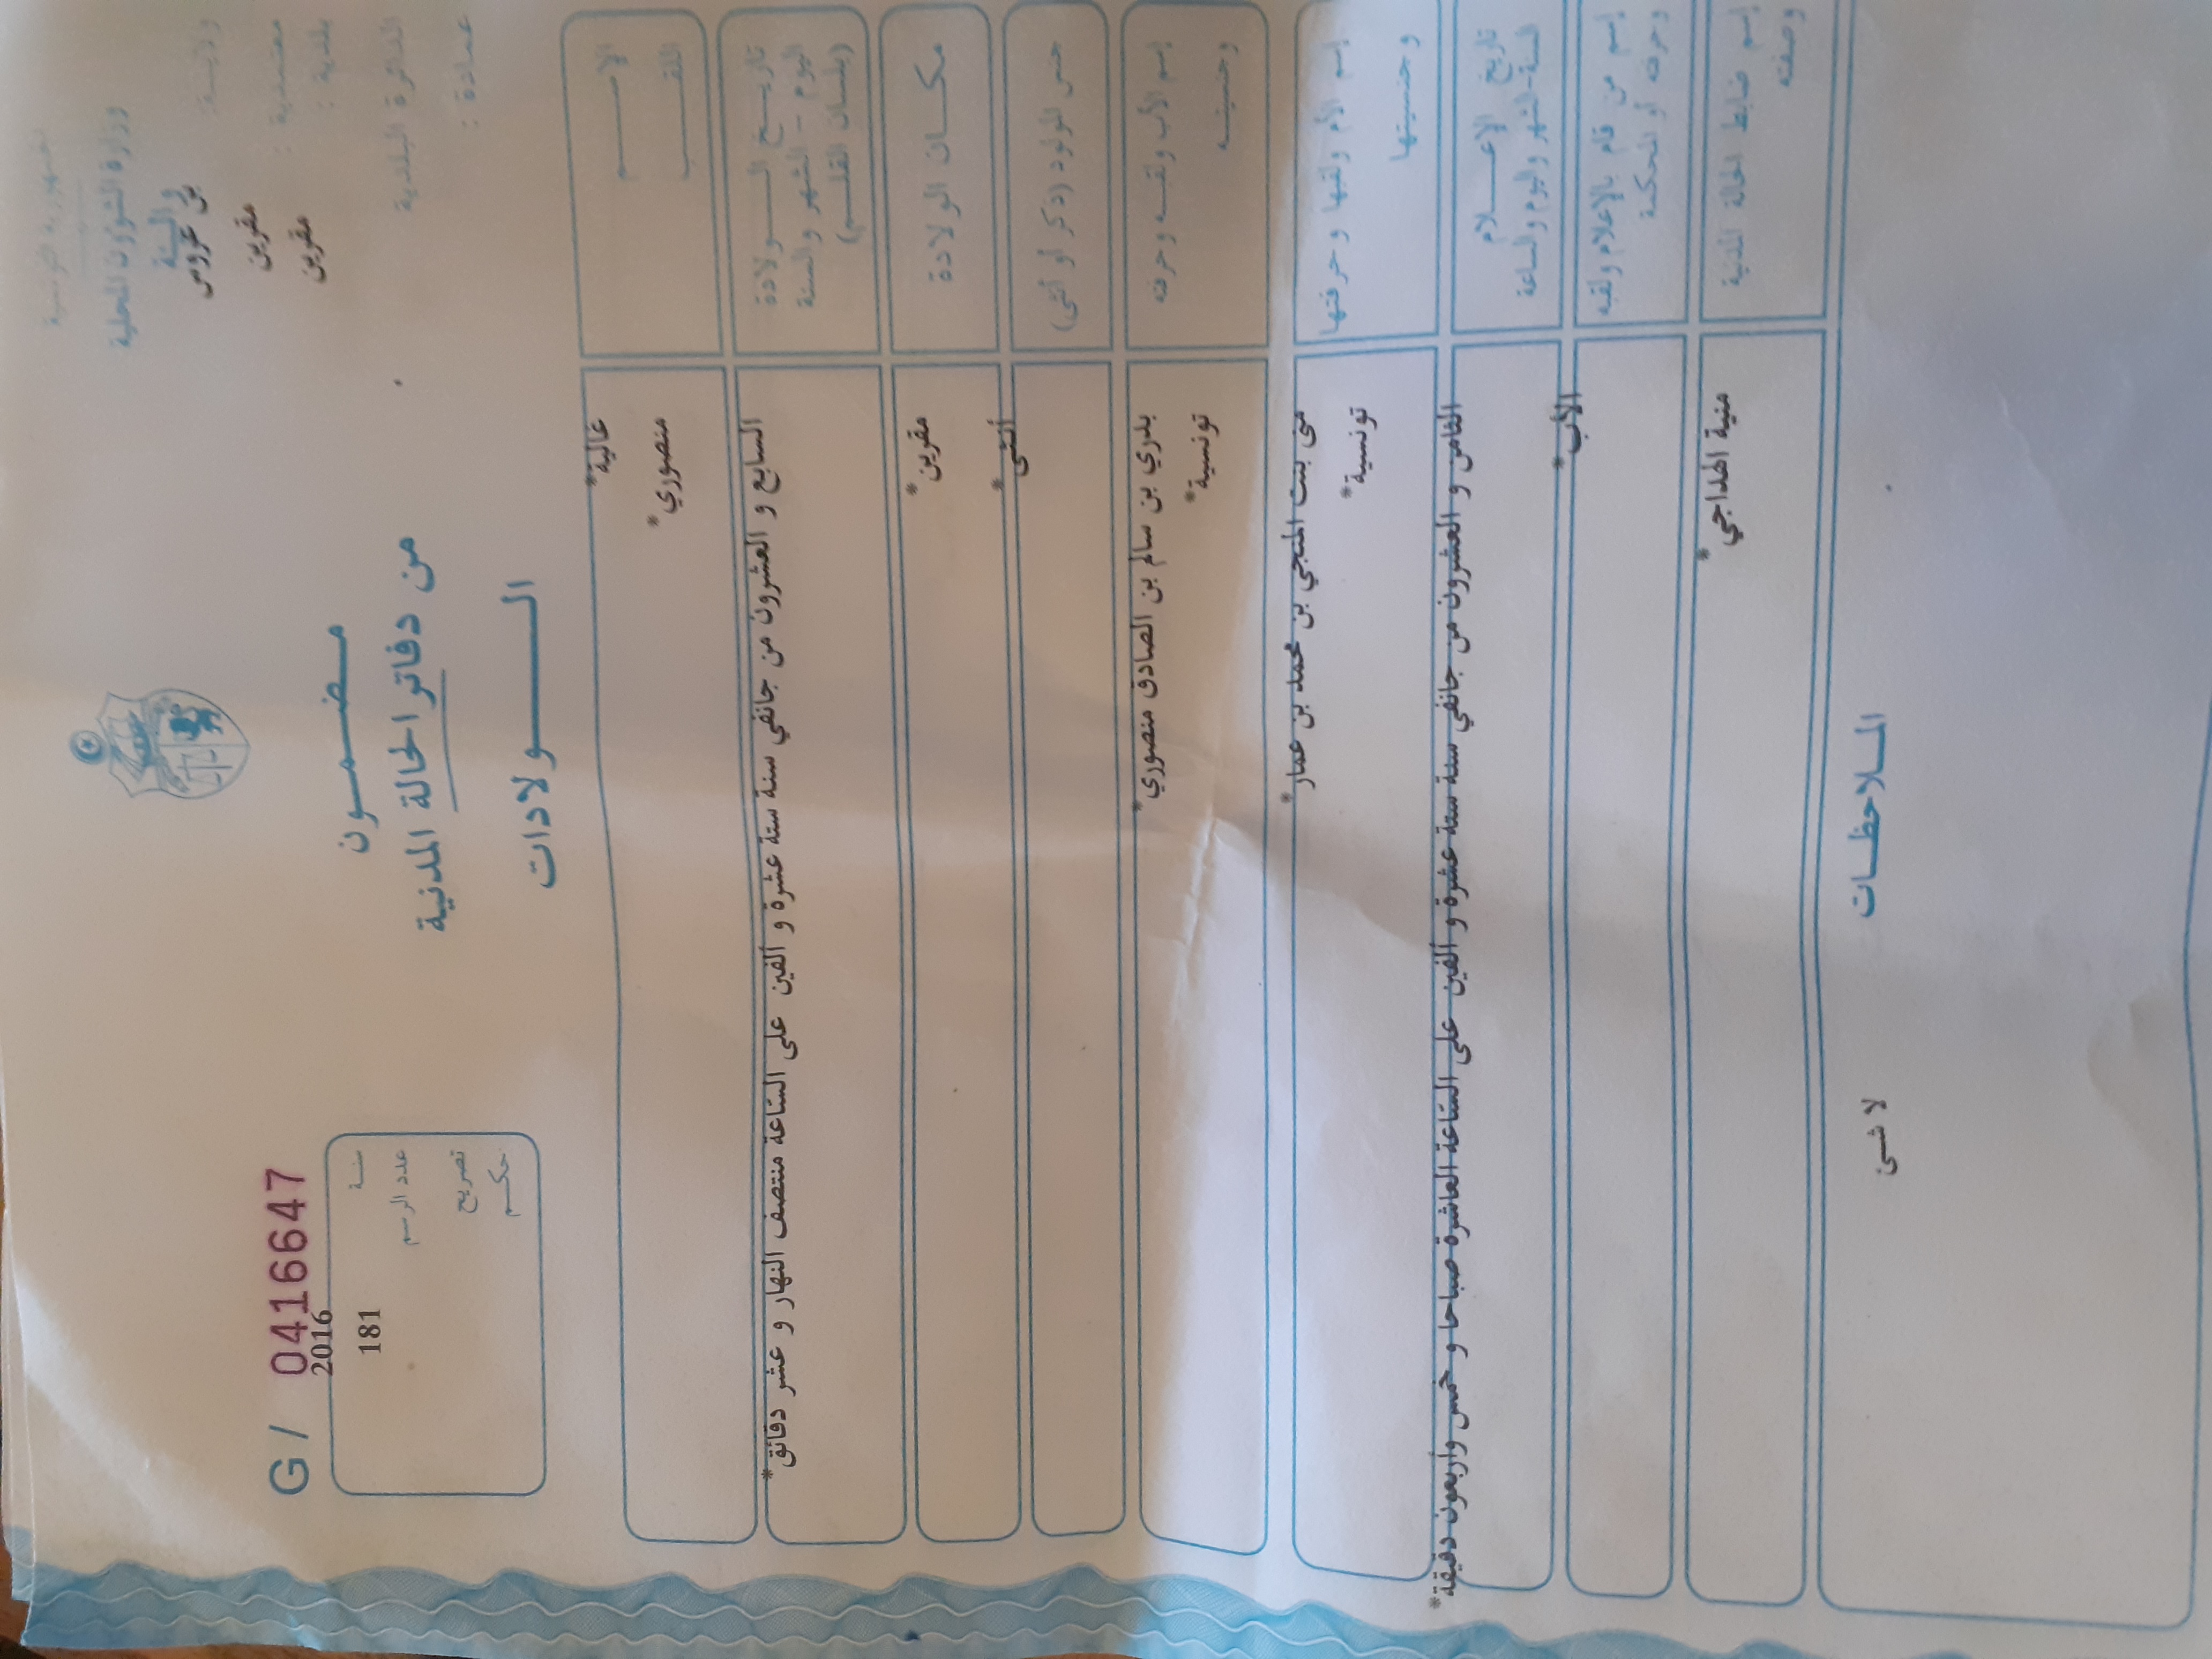 الجمهورية التونسية
وزارة الشؤون المحلية
والبيئة
ولاية: بن عروس
معتمدية : مقرين
بلدية : مقرين
الدائرة البلدية
عمادة :
مضمون
من دفاتر الحالة المدنية
الولادات
G / 0416647
سنة 2016
عدد الرسم 181
تصريح
حكم
الإسم غالية*
اللقب منصوري*
تاريخ الولادة السابع و العشرون من جانفي سنة ستة عشرة و ألفين على الساعة منتصف النهار و عشر دقائق*
اليوم - الشهر والسنة
(بلسان القلم)
مكان الولادة مقرين*
جنس المولود (ذكر أو أنثى) أنثى*
إسم الأب ولقبه وحرفته بدري بن سالم بن الصادق منصوري*
وجنسيته تونسية*
إسم الأم ولقبها وحرفتها منى بنت المنجي بن محمد بن عمار*
وجنسيتها تونسية*
تاريخ الإعلام الثامن و العشرون من جانفي سنة ستة عشرة و ألفين على الساعة العاشرة صباحا و خمس وأربعون دقيقة*
السنة-الشهر واليوم والساعة
إسم من قام بالإعلام ولقبه الأب*
وحرفته أو المحكمة
إسم ضابط الحالة المدنية منية الهداجي*
وصفته
الملاحظات
لا شئ